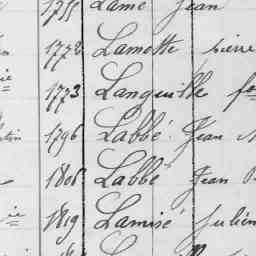 1755 Lamé Jean
1772 Lamotte pierre
1773 Languille
1796 Labbé Jean
1806 Labbé Jean
1819 Lamisé Julien